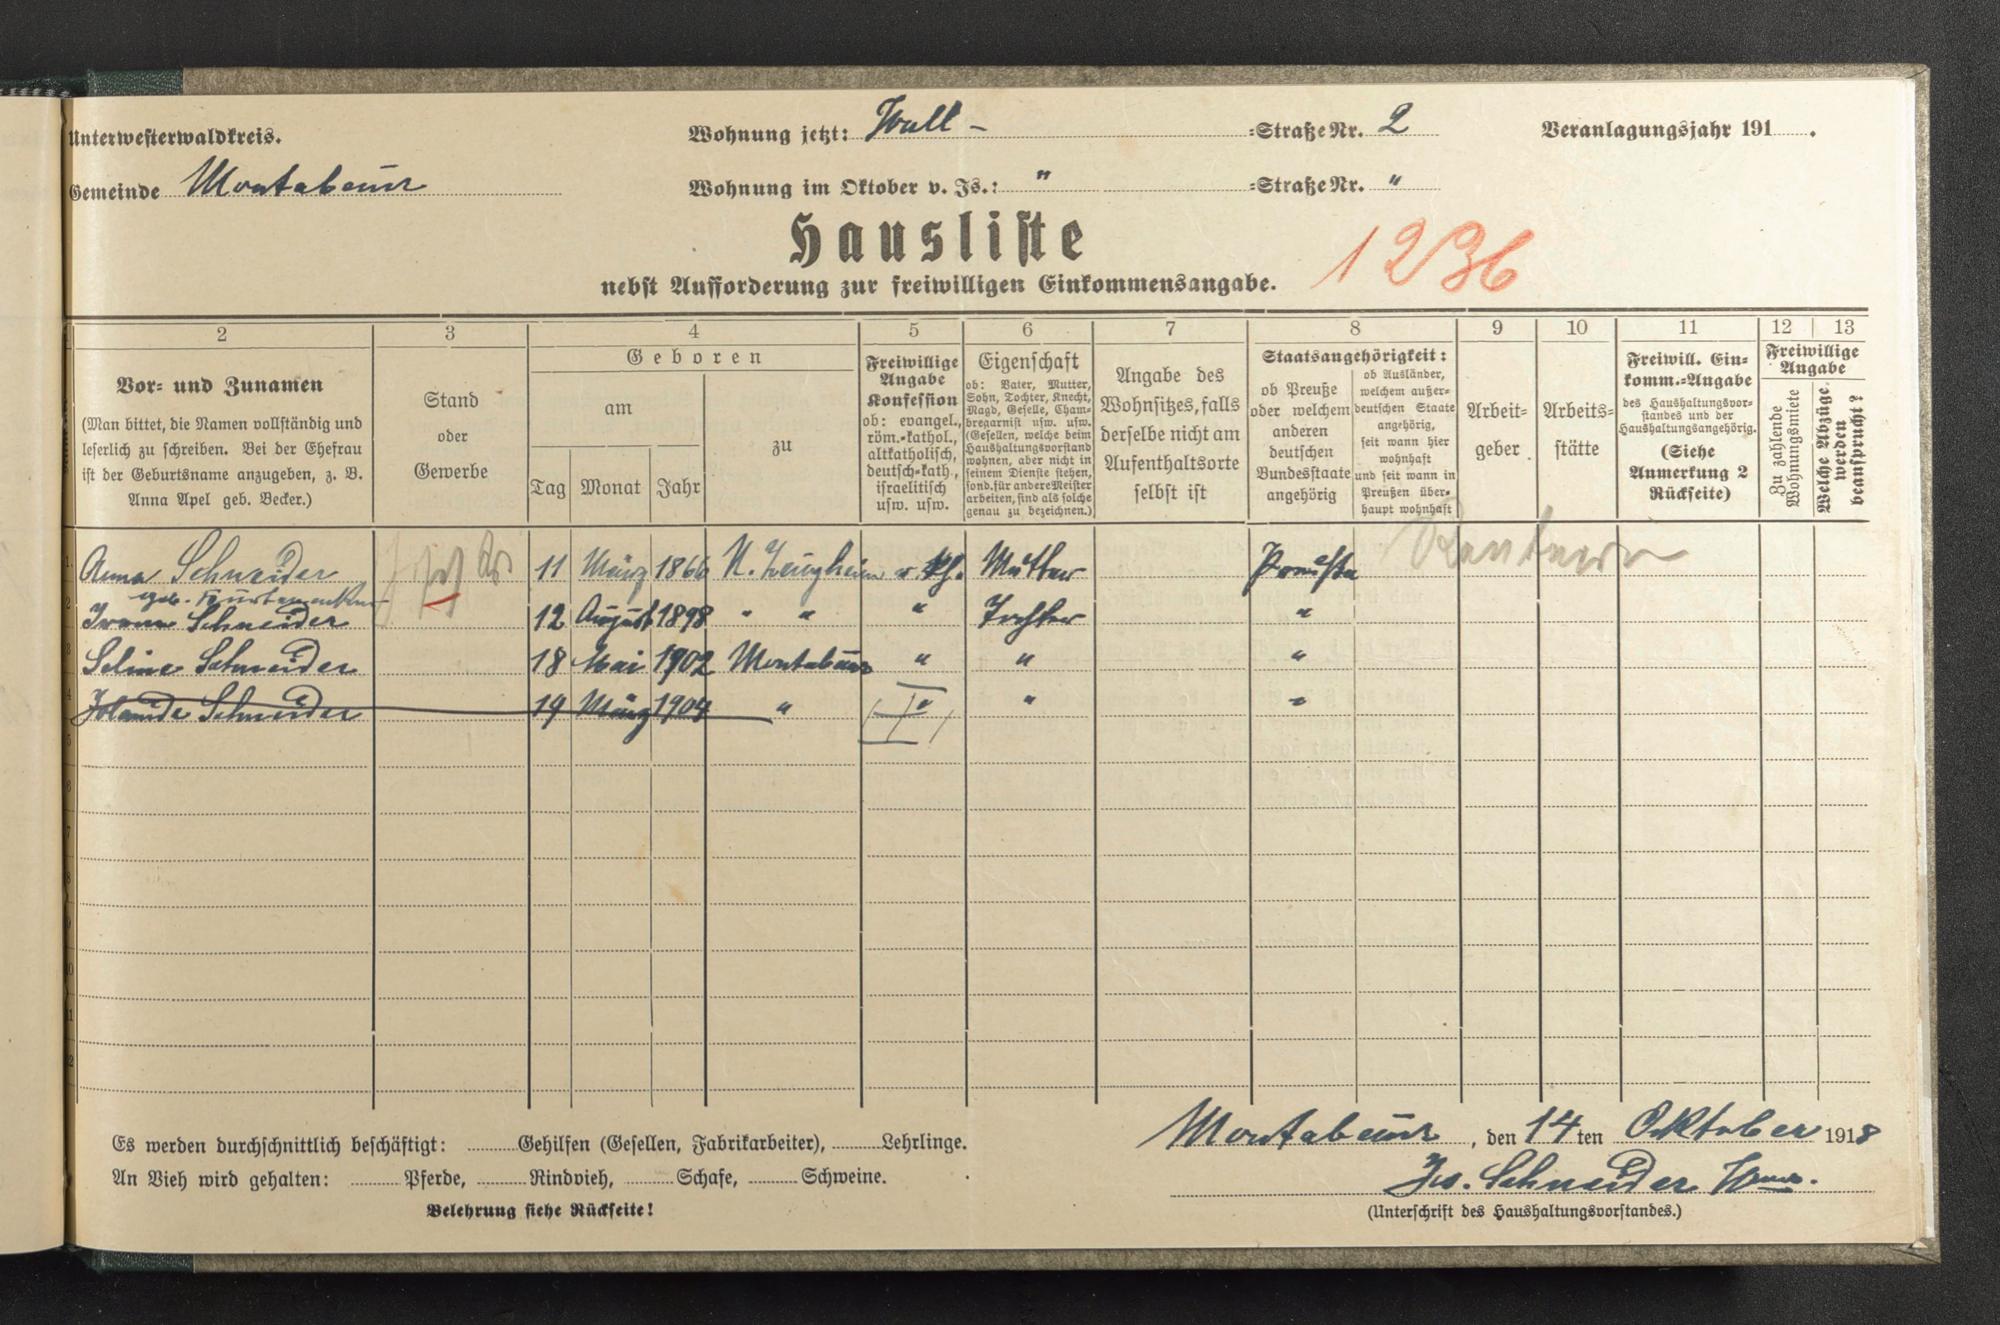 Unterwesterwaldkreis.
Wohnung jetzt: Wall - =Straße Nr. 2
Veranlagungsjahr 191 .
Gemeinde Montabaur
Wohnung im Oktober v. Js.: " =Straße Nr. "
Hausliste
1236
nebst Aufforderung zur freiwilligen Einkommensangabe.
2 3 4 5 6 7 8 9 10 11 12 13
Vor- und Zunamen
(Man bittet, die Namen vollständig und
leserlich zu schreiben. Bei der Ehefrau
ist der Geburtsname anzugeben, z. B.
Anna Apel geb. Becker.)
Stand
oder
Gewerbe
Geboren
am
Tag Monat Jahr
zu
Freiwillige
Angabe
Konfession
ob: evangel.,
röm.-kathol.,
altkatholisch,
deutsch-kath.,
israelitisch
usw. usw.
Eigenschaft
ob: Vater, Mutter,
Sohn, Tochter, Knecht,
Magd, Geselle, Cham-
bregarnist usw. usw.
(Gesellen, welche beim
Haushaltungsvorstand
wohnen, aber nicht in
seinem Dienste stehen,
sond. für andere Meister
arbeiten, sind als solche
genau zu bezeichnen.)
Angabe des
Wohnsitzes, falls
derselbe nicht am
Aufenthaltsorte
selbst ist
Staatsangehörigkeit:
ob Preuße
oder welchem
anderen
deutschen
Bundesstaate
angehörig
ob Ausländer,
welchem außer-
deutschen Staate
angehörig,
seit wann hier
wohnhaft
und seit wann in
Preußen über-
haupt wohnhaft
Arbeit-
geber
Arbeits-
stätte
Freiwill. Ein-
komm.-Angabe
des Haushaltungsvor-
standes und der
Haushaltungsangehörig.
(Siehe
Anmerkung 2
Rückseite)
Freiwillige
Angabe
Zu zahlende
Wohnungsmiete
Welche Abzüge
werden
beansprucht?
Rentnerin
Anna Schneider 11 März 1866 Mutter
geb.
Schneider 12 August 1898 " " " Tochter "
Seline Schneider 18 Mai 1902 Montabaur " " "
Jolande Schneider 19 März 1904 " " " "
Es werden durchschnittlich beschäftigt: Gehilfen (Gesellen, Fabrikarbeiter), Lehrlinge.
An Vieh wird gehalten: Pferde, Rindvieh, Schafe, Schweine.
Belehrung siehe Rückseite!
Montabaur, den 14ten Oktober 1918
Schneider
(Unterschrift des Haushaltungsvorstandes.)